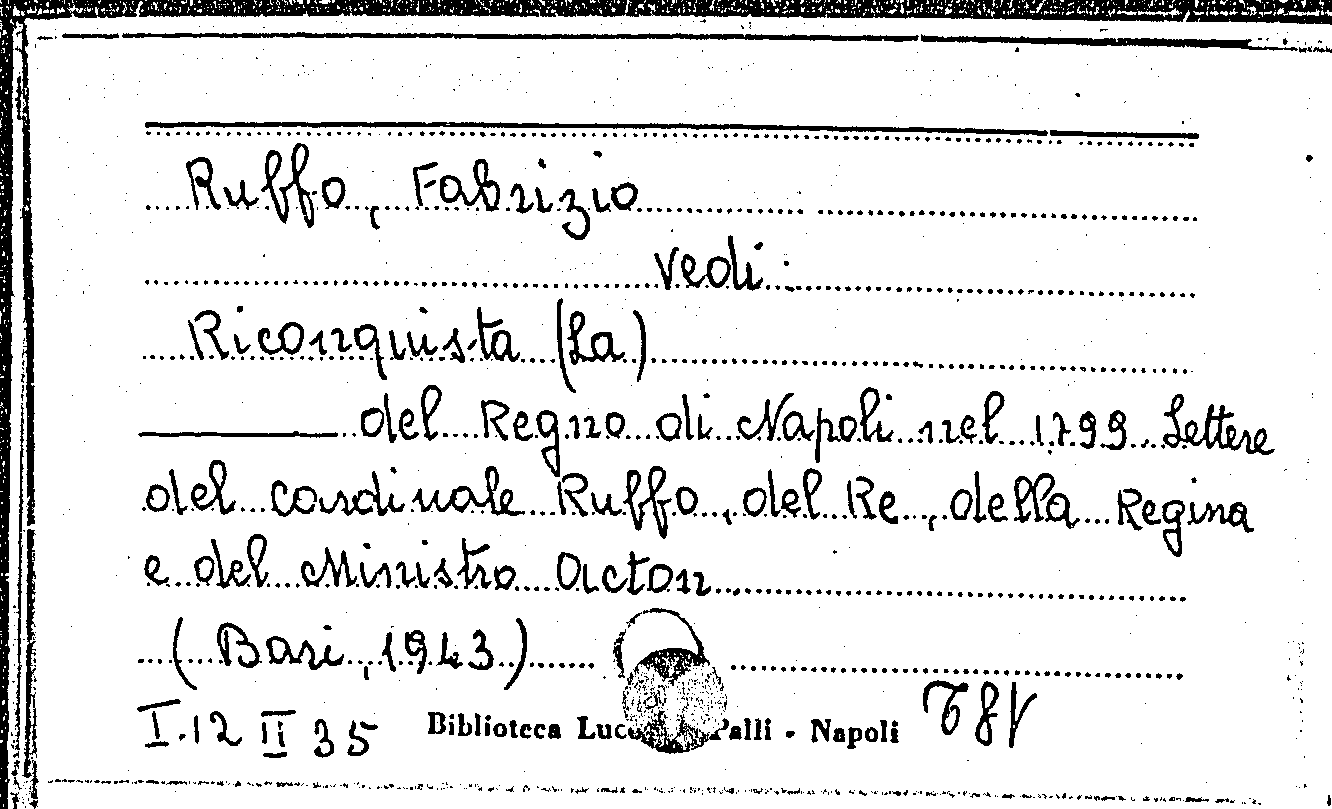 Ruffo, Fabrizio
vedi:
Riconquista (La)
del Regno di Napoli nel 1799. Lettere
del cardinale Ruffo, del Re, della Regina
e del Ministro Acton.
(Bari, 1943)
I.12 II 35 Biblioteca Palli - Napoli